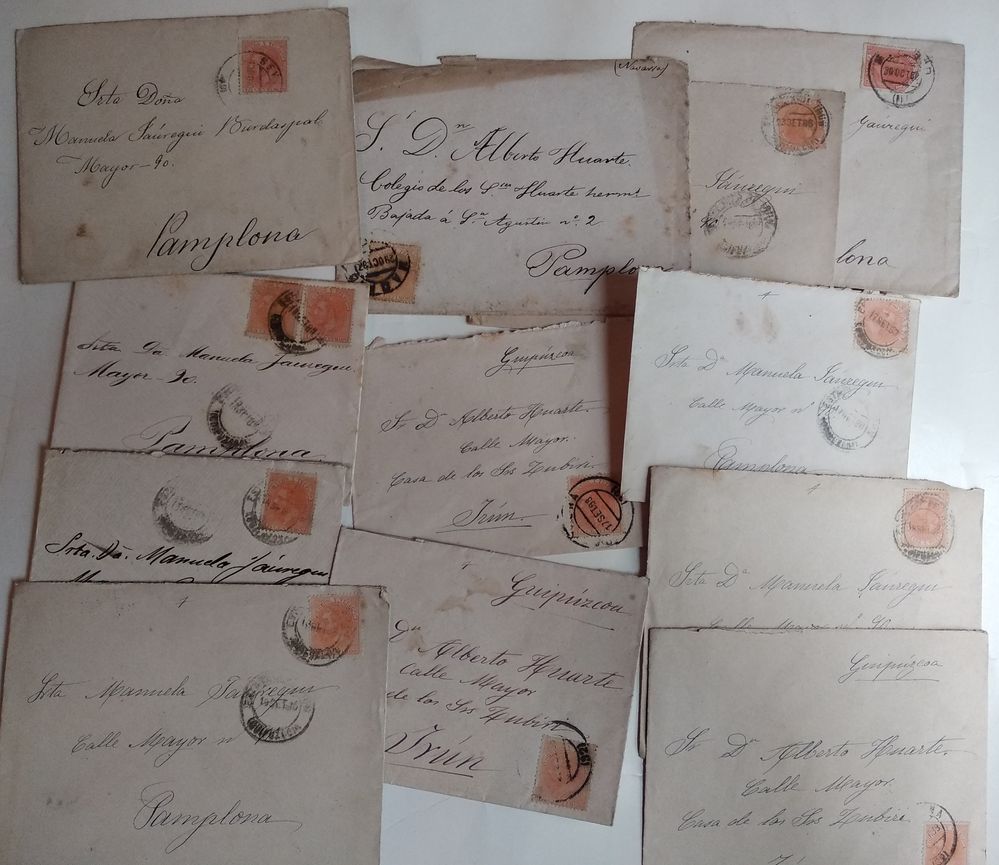 Srta Doña
Manuela Jáuregui Burdaspal
Mayor-90.
Pamplona
(Navarra)
S. Dn. Alberto Huarte.
Colegio de los Sres Huarte herms
Bajada á Sn Agustin nº 2
Pamplona
30 OCT
Jáuregui
12 SET 88
Jáuregui
lona
Srta Da Manuela Jáuregui
Mayor-90.
Pamplona
Guipúzcoa
Sr Dn Alberto Huarte.
Calle Mayor.
Casa de los Srs Zubiri.
Irún.
17 SET 88
Srta Da Manuela Jáuregui
Calle Mayor nº
Pamplona
Srta. Da. Manuela Jáuregui
Srta Da Manuela Jáuregui
Calle Mayor nº 90
Srta Manuela Jauregui
Calle Mayor nº
Pamplona
Guipúzcoa
Dn
Alberto Huarte
Calle Mayor
de los Srs Zubiri
Irún
Guipúzcoa
Sr Dn Alberto Huarte.
Calle Mayor
Casa de los Srs Zubiri